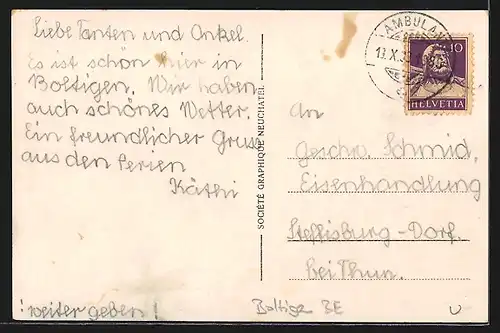 Liebe Tanten und Onkel.
Es ist schön hier in
Boltigen. Wir haben
auch schönes Wetter.
Ein freundlicher Gruss
aus den Ferien
Käthi
! weiter geben !
SOCIÉTÉ GRAPHIQUE NEUCHATEL
AMBULANT
10
HELVETIA
An
Geschw. Schmid,
Eisenhandlung
Steffisburg-Dorf.
bei Thun.
Boltigen BE